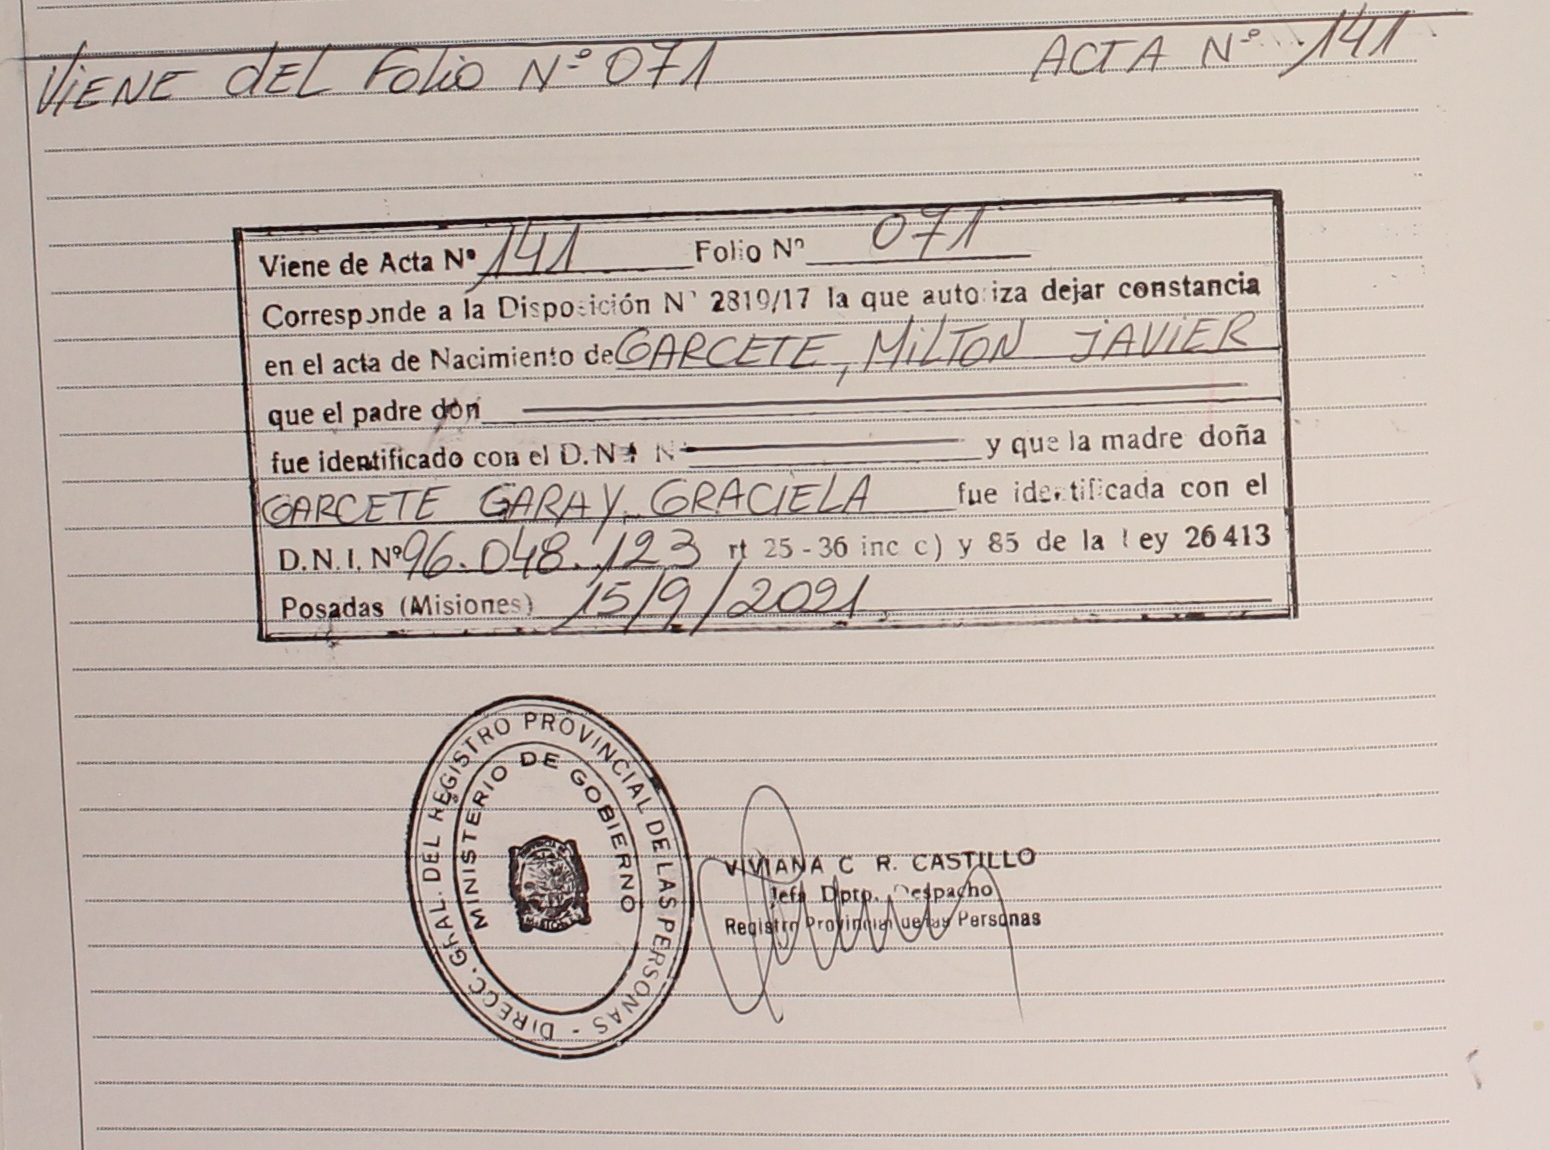 VIENE DEL FOLIO Nº 071 ACTA Nº 141
Viene de Acta Nº 141 Folio Nº 071
Corresponde a la Disposición Nº 2819/17 la que autoriza dejar constancia
en el acta de Nacimiento de GARCETE, MILTON JAVIER
que el padre don
fue identificado con el D.N.I Nº y que la madre doña
GARCETE GARAY, GRACIELA fue identificada con el
D.N.I. Nº 96.048.123 rt 25-36 inc c) y 85 de la Ley 26413
Posadas (Misiones) 15/9/2021
DIRECC. GRAL. DEL REGISTRO PROVINCIAL DE LAS PERSONAS -
MINISTERIO DE GOBIERNO
VIVIANA C R. CASTILLO
Jefa Dpto. Despacho
Registro Provincial de las Personas